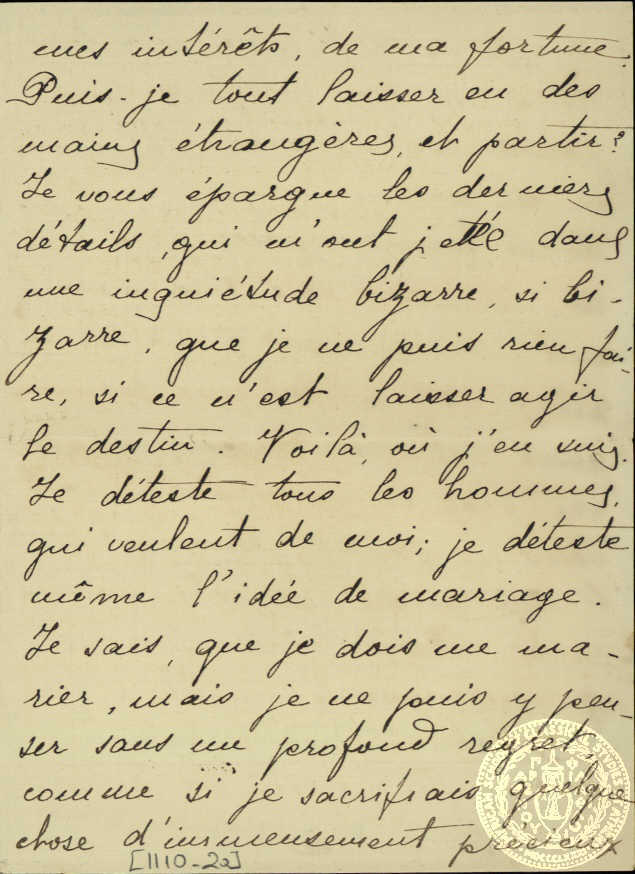 mes intérêts, de ma fortune.
Puis-je tout laisser en des
mains étrangères, et partir?
Je vous épargne les derniers
détails, qui m'ont jetté dans
une inquiétude bizarre, si bi-
zarre, que je ne puis rien fai-
re, si ce n'est laisser agir
le destin. Voilà, où j'en suis.
Je déteste tous les hommes,
qui veulent de moi; je déteste
même l'idée de mariage.
Je sais, que je dois me ma-
rier, mais je ne puis y pen-
ser sans un profond regret,
comme si je sacrifiais quelque
chose d'immensement précieux
[1110-2a]